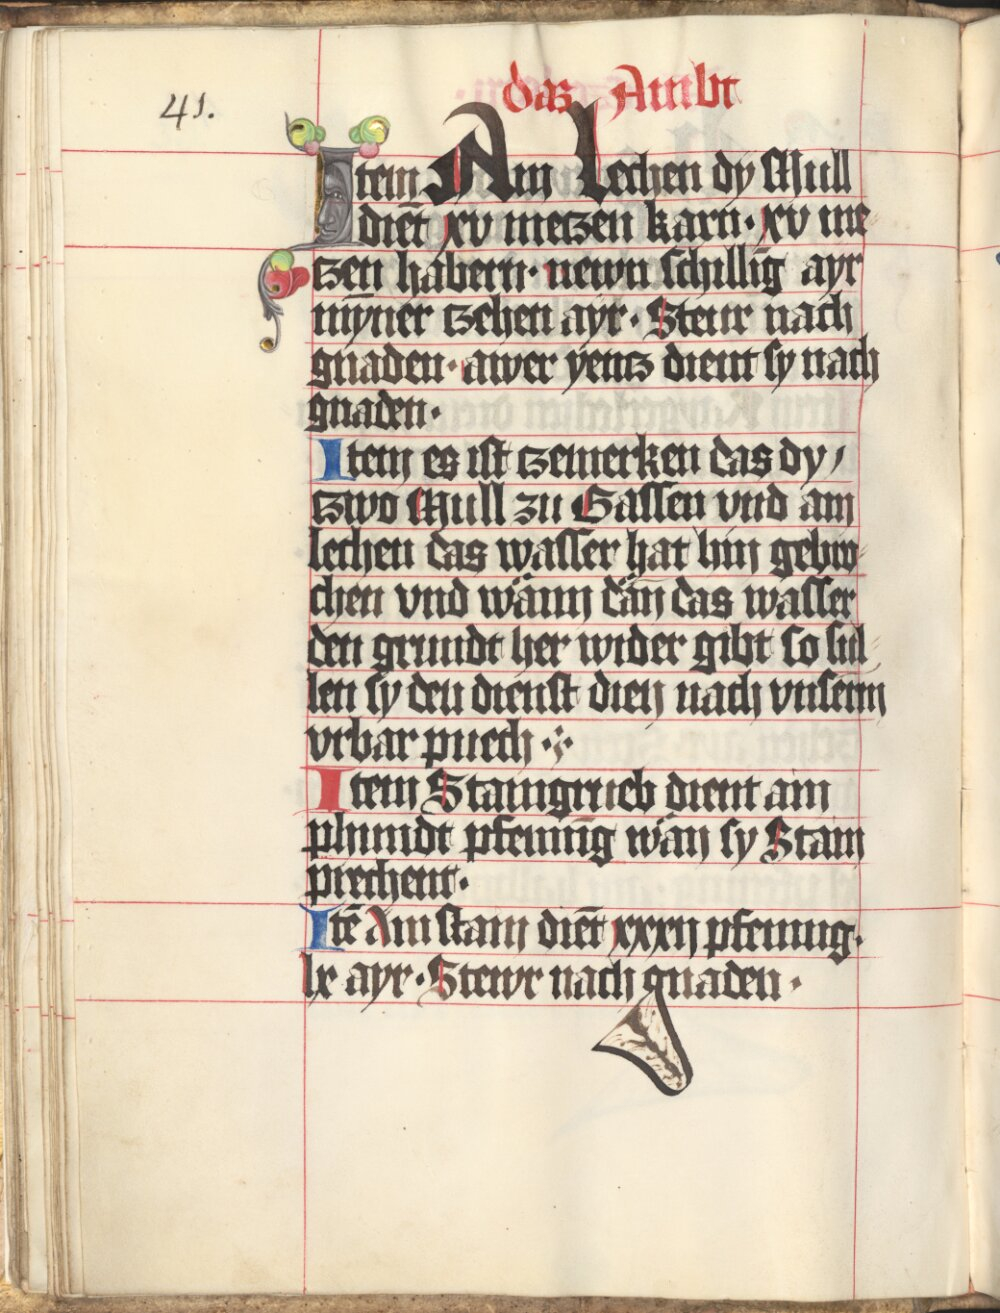 41.
das Ambt
Item Am Lechen dy Mull
dien̄t xv metzen karn · xv me
tzen habern · newn schilliḡ ayr
mȳner tzehen ayr · Steur nach
gnaden · awer yentz dient sy nach
gnaden ·
Item es ist tzemerken das dy /
tzwo Mull zu Gassen vnd am
lechen das wasser hat hin gebro
chen vnd wann dan̄ das wasser
den grundt her wider gibt so sul
len sy den dienst dien nach vnserm
vrbar puech ·:·
Item Staingrueb dient ain
phundt pfenning wan̄ sy Stain
prechent ·
Itē Am stain dien̄t xxxij pfennig ·
lx ayr · Stewr nach gnaden ·